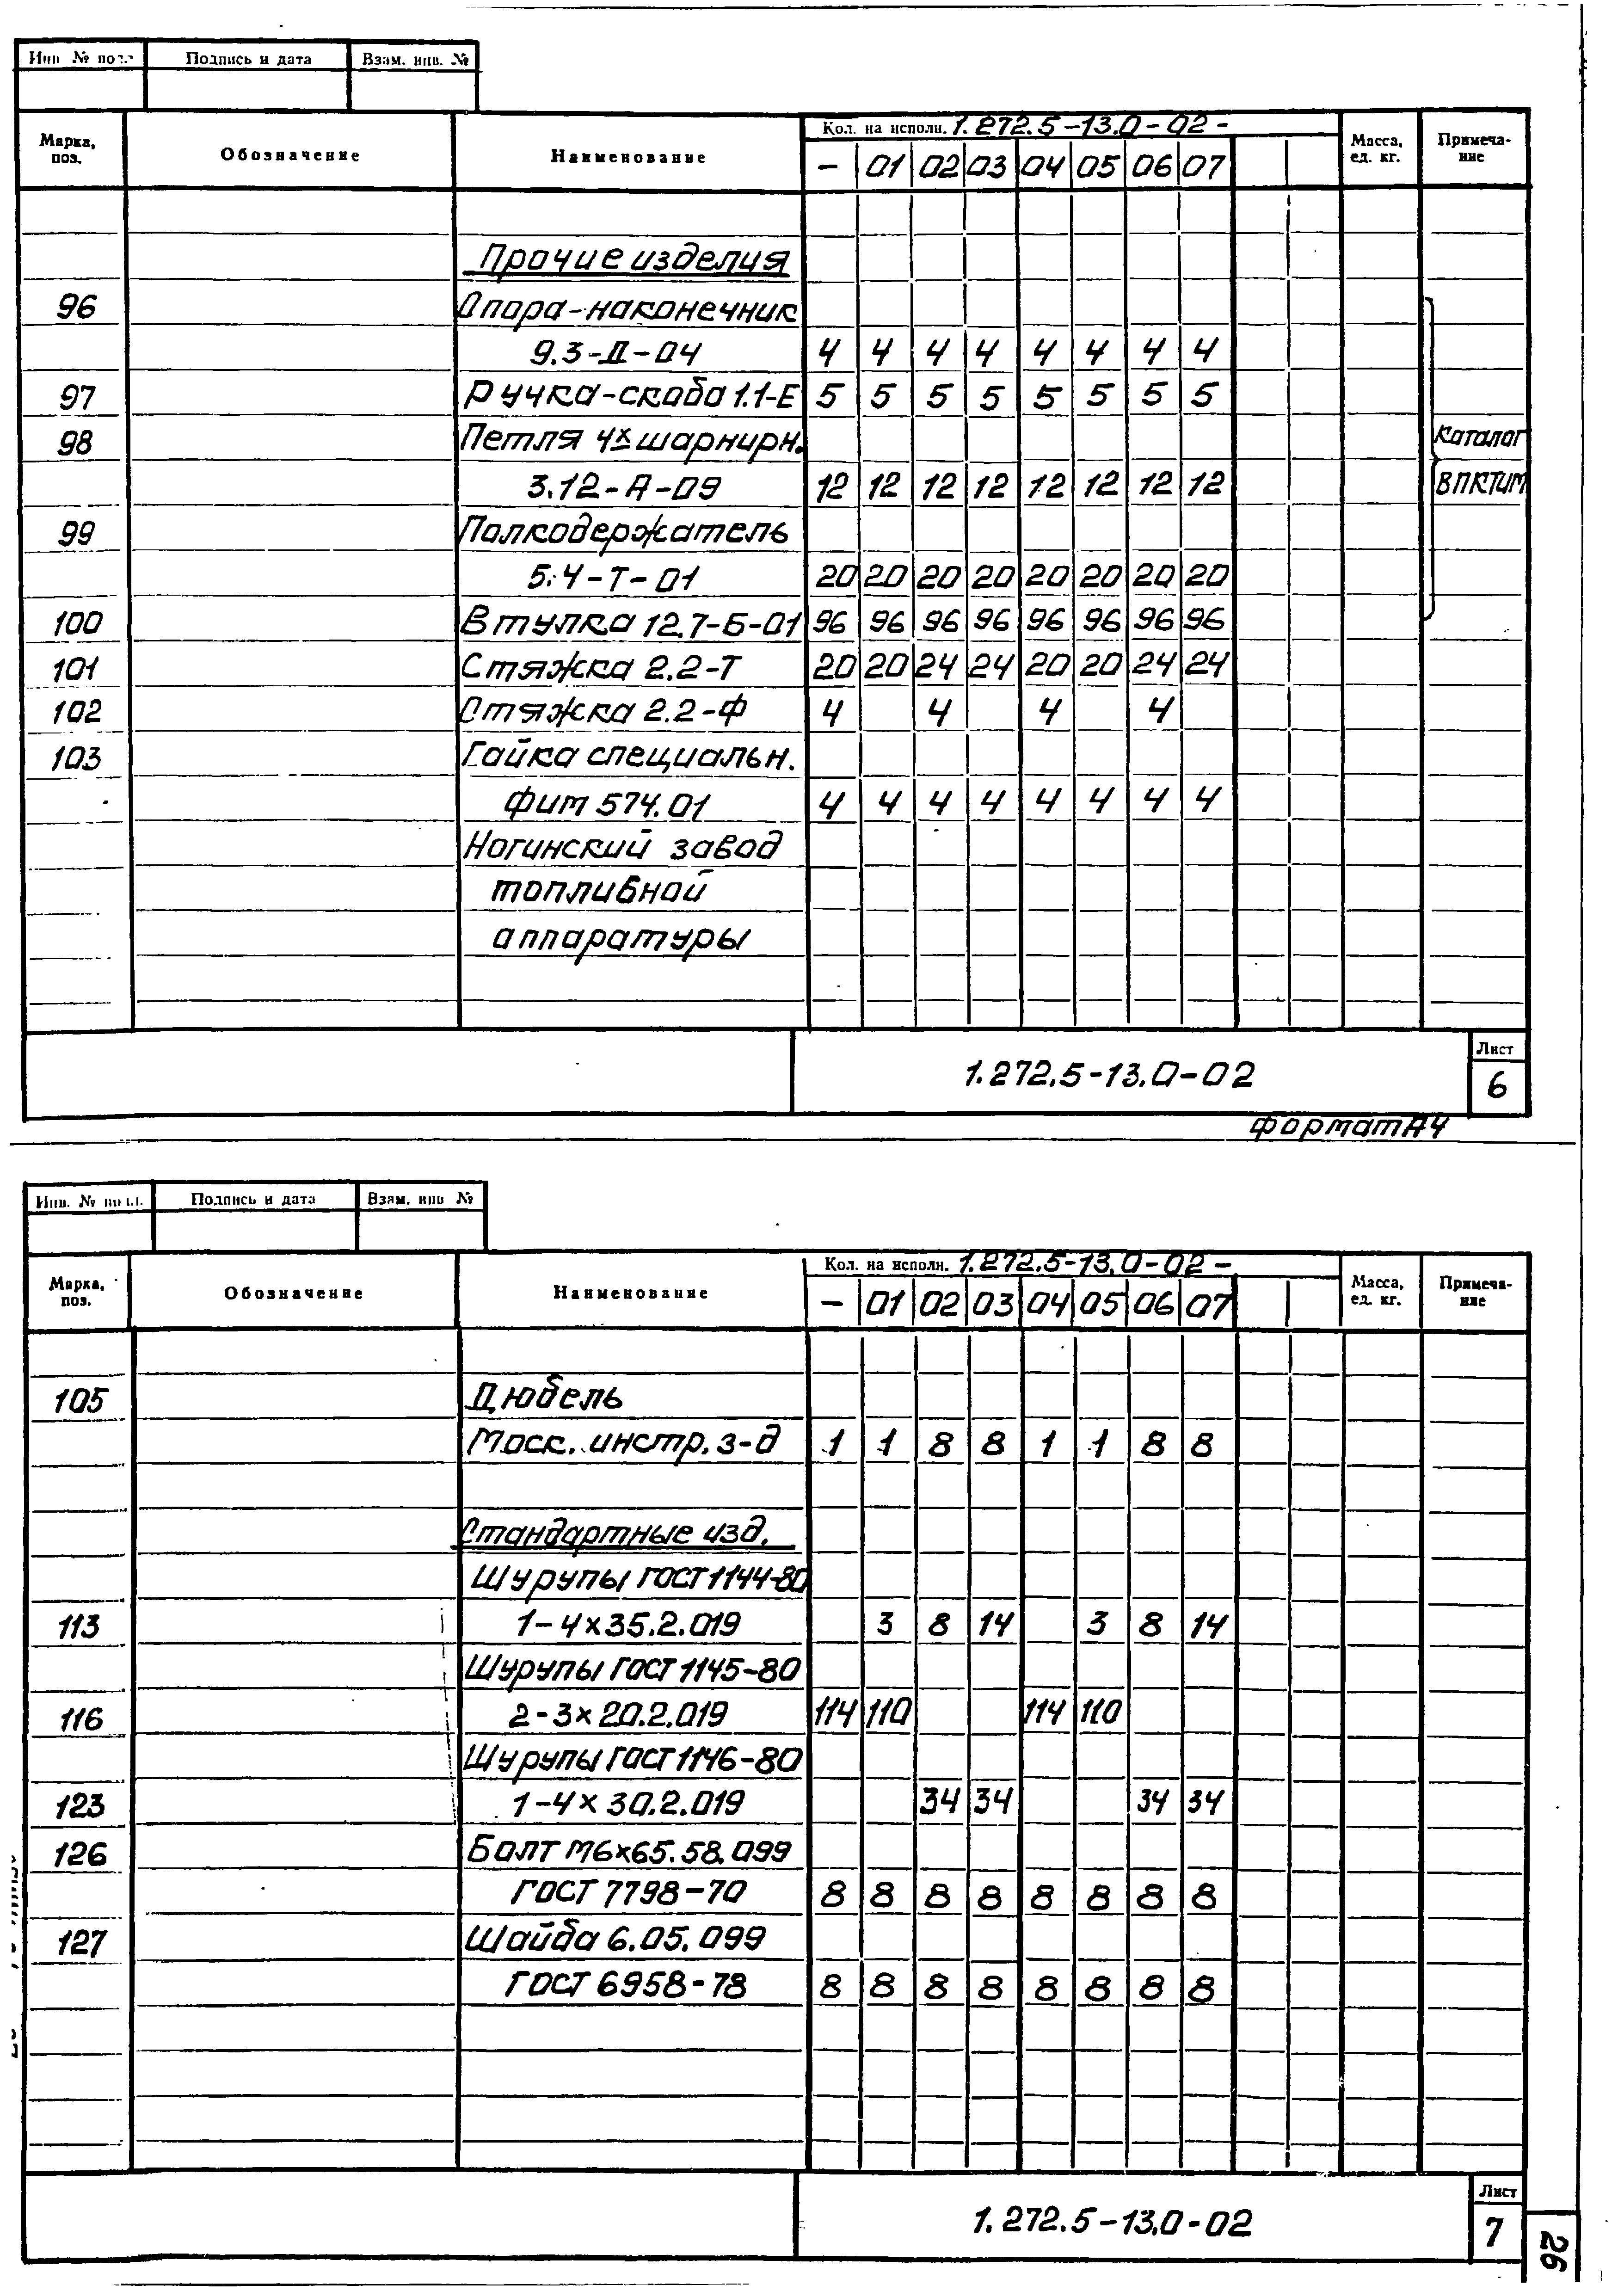 Инв. № подл. Подпись и дата Взам. инв. №
Марка, поз. Обозначение Наименование Кол. на исполн. 1.272.5-13.0-02- Масса, ед. кг. Примечание
– 01 02 03 04 05 06 07
Прочие изделия
96 Опора-наконечник
9.3-Д-04 4 4 4 4 4 4 4 4
97 Ручка-скоба 1.1-Е 5 5 5 5 5 5 5 5
98 Петля 4х шарнирн. каталог
3.12-А-09 12 12 12 12 12 12 12 12 ВПКТИМ
99 Полкодержатель
5.4-Т-01 20 20 20 20 20 20 20 20
100 Втулка 12.7-Б-01 96 96 96 96 96 96 96 96
101 Стяжка 2.2-Т 20 20 24 24 20 20 24 24
102 Стяжка 2.2-Ф 4 4 4 4
103 Гайка специальн.
фит 574.01 4 4 4 4 4 4 4 4
Ногинский завод
топливной
аппаратуры
1.272.5-13.0-02 Лист 6
формат А4
Инв. № подл. Подпись и дата Взам. инв №
Марка, поз. Обозначение Наименование Кол. на исполн. 1.272.5-13.0-02- Масса, ед. кг. Примечание
– 01 02 03 04 05 06 07
105 Дюбель
Моск. инстр. з-д 1 1 8 8 1 1 8 8
Стандартные изд.
Шурупы ГОСТ 1144-80
113 1-4х35.2.019 3 8 14 3 8 14
Шурупы ГОСТ 1145-80
116 2-3х20.2.019 114 110 114 110
Шурупы ГОСТ 1146-80
123 1-4х30.2.019 34 34 34 34
126 Болт М6х65.58.099
ГОСТ 7798-70 8 8 8 8 8 8 8 8
127 Шайба 6.05.099
ГОСТ 6958-78 8 8 8 8 8 8 8 8
1.272.5-13.0-02 Лист 7
26